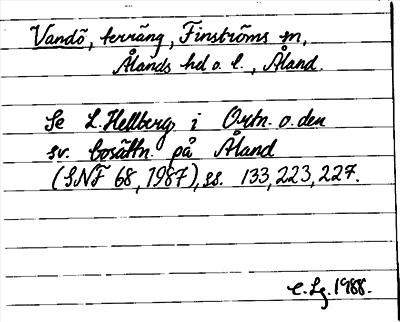 Vandö, terräng, Finströms sn,
Ålands hd o. l., Åland.
Se L. Hellberg i Ortn. o. den
sv. bosättn. på Åland
(SNF 68, 1987), ss. 133, 223, 227.
E. Lg. 1988.